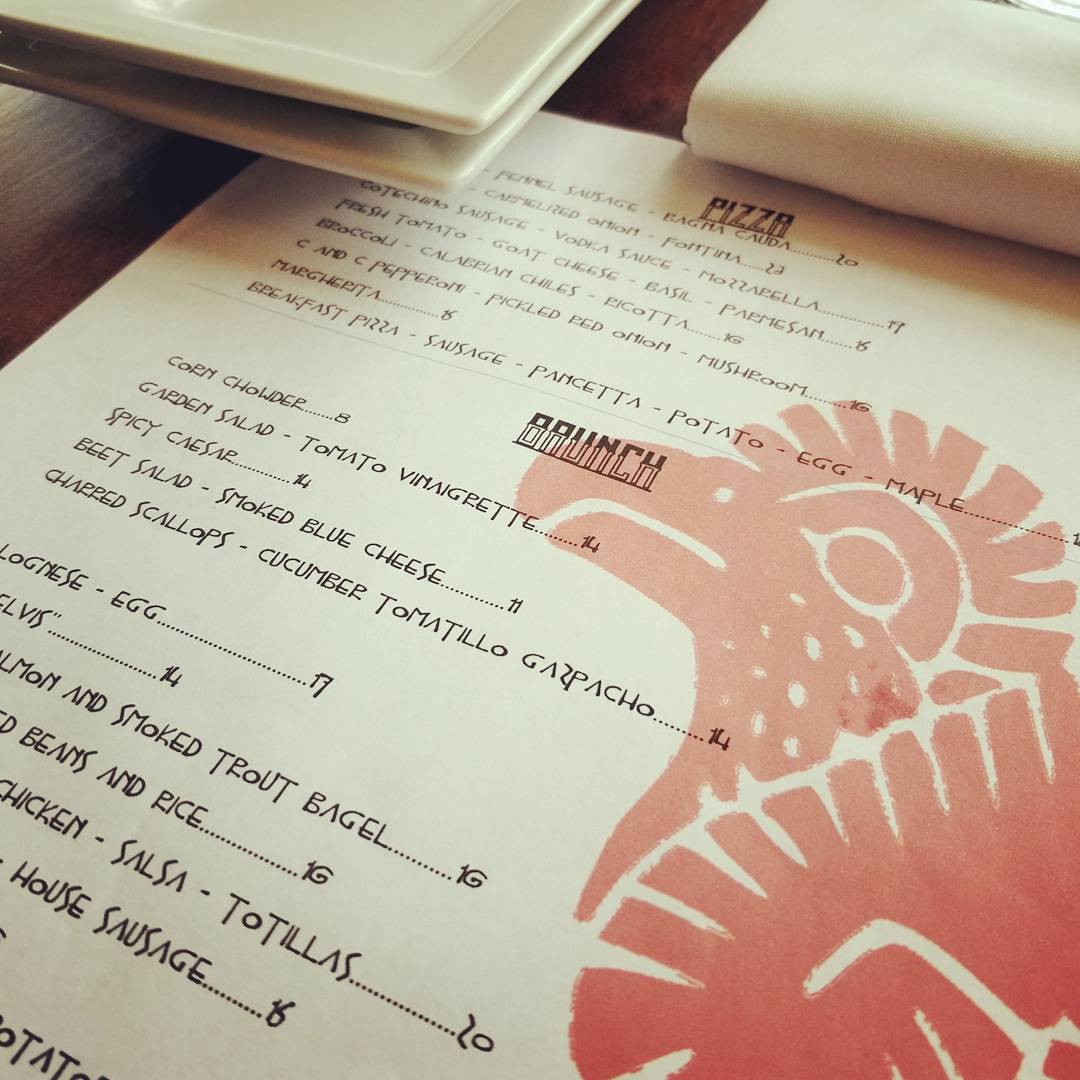 PIZZA
FENNEL SAUSAGE - BAGNA CAUDA..........20
COTECHINO SAUSAGE - CARMELIZED ONION - FONTINA.....22
FRESH TOMATO - VODKA SAUCE - MOZZARELLA...............17
BROCCOLI - GOAT CHEESE - BASIL - PARMESAN.......15
C AND C PEPPERONI - CALABRIAN CHILES - RICOTTA.......16
MARGHERITA - PICKLED RED ONION - MUSHROOM.........16
.................15
BREAKFAST PIZZA - SAUSAGE - PANCETTA - POTATO - EGG - MAPLE
BRUNCH
CORN CHOWDER......8
GARDEN SALAD - TOMATO VINAIGRETTE........14
SPICY CAESAR...........14
BEET SALAD - SMOKED BLUE CHEESE............11
CHARRED SCALLOPS - CUCUMBER TOMATILLO GAZPACHO........14
LOGNESE - EGG........................17
ELVIS"..................14
ALMON AND SMOKED TROUT BAGEL..........16
ED BEANS AND RICE................16
CHICKEN - SALSA - TOTILLAS.................20
HOUSE SAUSAGE..........15
POTATO